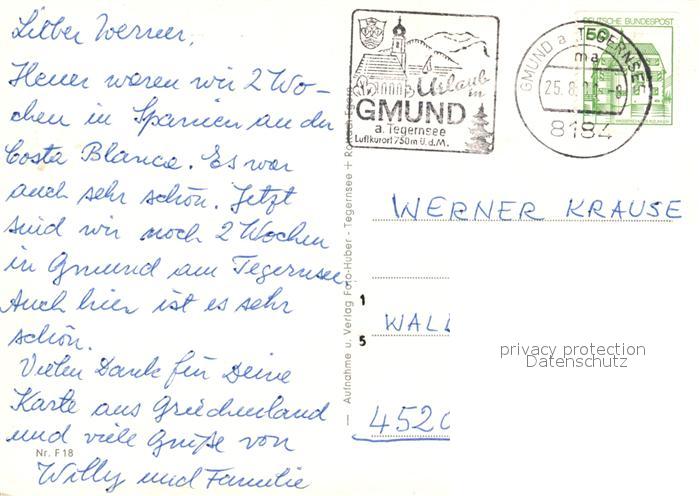 Lieber Werner,
Heuer waren wir 2 Wo-
chen in Spanien an der
Costa Blanca. Es war
auch sehr schön. Jetzt
sind wir noch 2 Wochen
in Gmund am Tegernsee.
Auch hier ist es sehr
schön.
Vielen Dank für Deine
Karte aus Griechenland
und viele Grüße von
Willy und Familie
Nr. F 18
Aufnahme u. Verlag Foto-Huber - Tegernsee + Rottach-Egern
Urlaub
in
GMUND
a. Tegernsee
Luftkurort 750m ü.d.M.
GMUND a. TEGERNSEE
ma
25.8.
8184
DEUTSCHE BUNDESPOST
50
WERNER KRAUSE
1
WALL
5
4520
privacy protection
Datenschutz